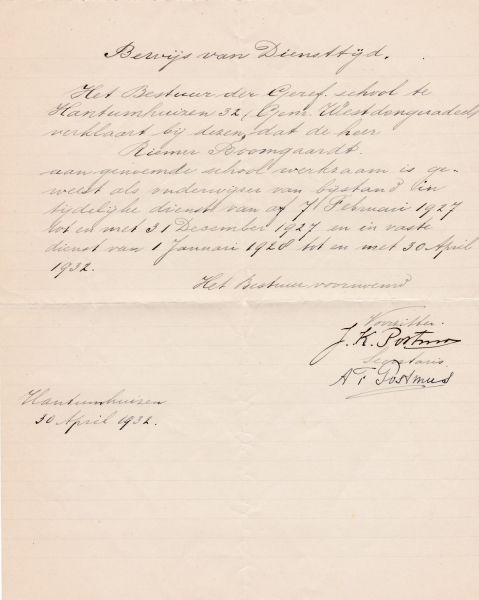 Bewijs van Diensttijd.
Het Bestuur der Geref. school te
Hantumhuizen 32, Gem. Westdongeradeel
verklaart bij dezen, dat de heer
Riemer Boomgaardt
aan genoemde school werkzaam is ge-
weest als onderwijzer van bijstand in
tijdelijke dienst van af 7 Februari 1927
tot en met 31 Desember 1927 en in vaste
dienst van 1 Januari 1928 tot en met 30 April
1932.
Het Bestuur voornoemd
Voorzitter
J. K. Postma
Secretaris
A T Postmus
Hantumhuizen
30 April 1932.